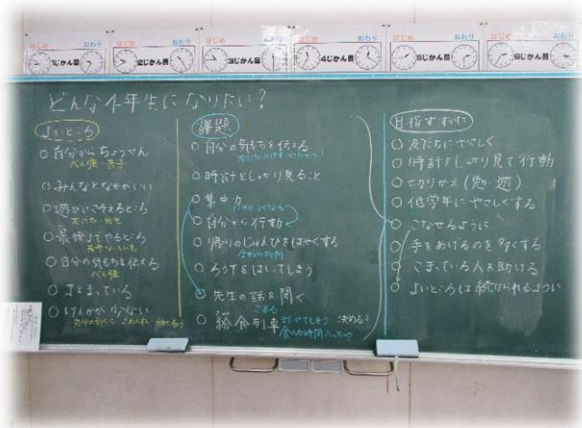 はじめ おわり
1じかん目
はじめ おわり
2じかん目
はじめ おわり
3じかん目
はじめ おわり
4じかん目
はじめ おわり
5じかん目
はじめ おわり
6じかん目
どんな4年生になりたい?
よいところ
○自分からちょうせん
べん強・苦手
○みんなとなかがいい
○遊びにさそえるところ
○最後までやるところ
○自分の気もちを伝える
べん強
○まとまっている
○けんかが少ない
課題
○自分の気もちを伝える
○時計をしっかり見ること
○集中力
○自分から行動
○帰りのじゅんびをはやくする
○ろう下をはしってしまう
○先生の話を聞く
○給食列車
決める?
目指すすがた
○友だちにやさしく
○時計をしっかり見て行動
○きりかえ(勉・遊)
○低学年にやさしくする
○こなせるように
○手をあげるのを多くする
○こまっている人を助ける
○よいところは続けられるように